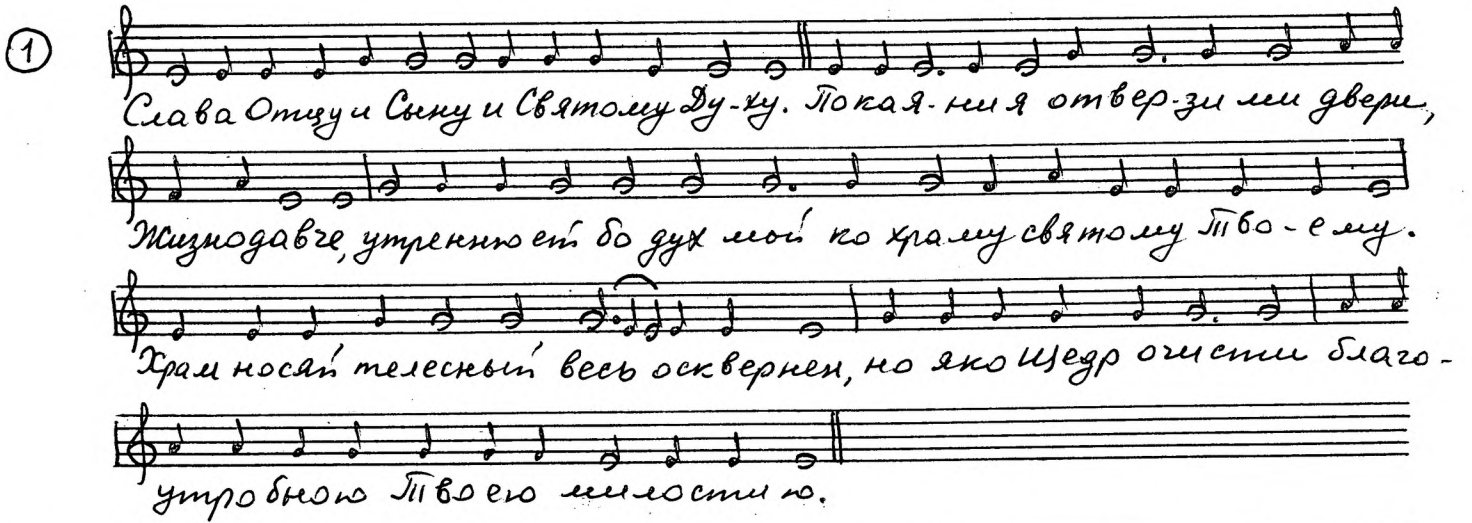 1
Слава Отцу и Сыну и Святому Ду-ху. Покая-ния отвер-зи ми двери,
Жизнодавче, утреннюет бо дух мой ко храму святому Тво-ему.
Храм носяй телесный весь осквернен, но яко Щедр очисти благо-
утробною Твоею милостию.